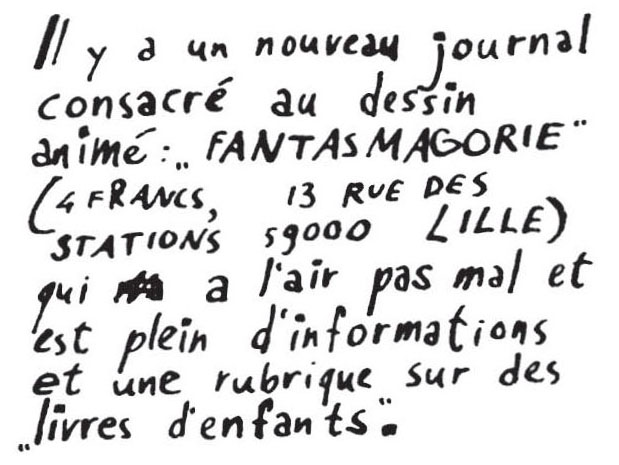 Il y a un nouveau journal
consacré au dessin
animé : „FANTASMAGORIE“
(4 FRANCS, 13 RUE DES
STATIONS 59000 LILLE)
qui a l'air pas mal et
est plein d'informations
et une rubrique sur des
„livres d'enfants“.